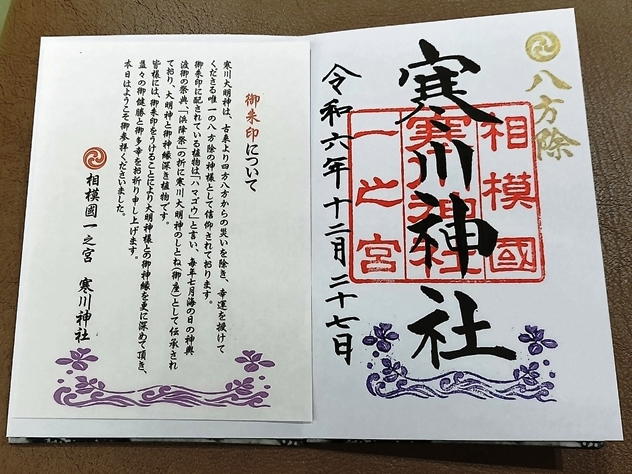 八方除
相模國
一之宮
寒川神社
寒川神社
令和六年十二月二十七日
御朱印について
寒川大明神は、古来より四方八方からの災いを除き、幸運を授けて
くださる唯一の八方除の神様として信仰されております。
御朱印に配されている植物は「ハマゴウ」と言い、毎年七月海の日の神輿
渡御の祭典、「浜降祭」の折に寒川大明神のしとね(御座)として伝承され
ており、大明神と御神縁深き植物です。
皆様には、御朱印をうけることにより大明神様との御神縁を更に深めて頂き、
益々の御健勝と御多幸をお祈り申し上げます。
本日はようこそ御参拝くださいました。
相模國一之宮 寒川神社